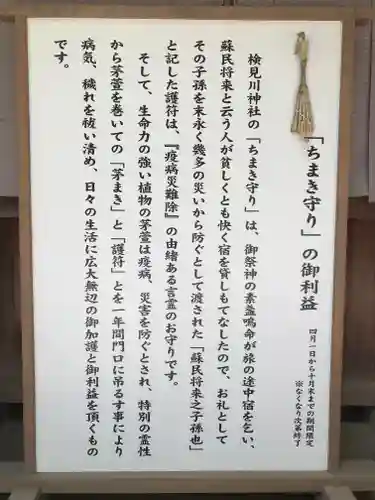 「ちまき守り」の御利益
四月一日から十月末までの期間限定
※なくなり次第終了
検見川神社の「ちまき守り」は、御祭神の素盞嗚命が旅の途中宿を乞い、
蘇民将来と云う人が貧しくとも快く宿を貸しもてなしたので、お礼として
その子孫を末永く幾多の災いから防ぐとして渡された「蘇民将来之子孫也」
と記した護符は、『疫病災難除』の由緒ある言霊のお守りです。
そして、生命力の強い植物の茅萱は疫病、災害を防ぐとされ、特別の霊性
から茅萱を巻いての「茅まき」と「護符」とを一年間門口に吊るす事により
病気、穢れを祓い清め、日々の生活に広大無辺の御加護と御利益を頂くもの
です。